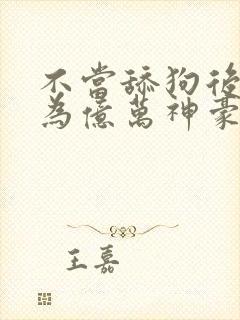 不當舔狗後
為億萬神豪
王嘉